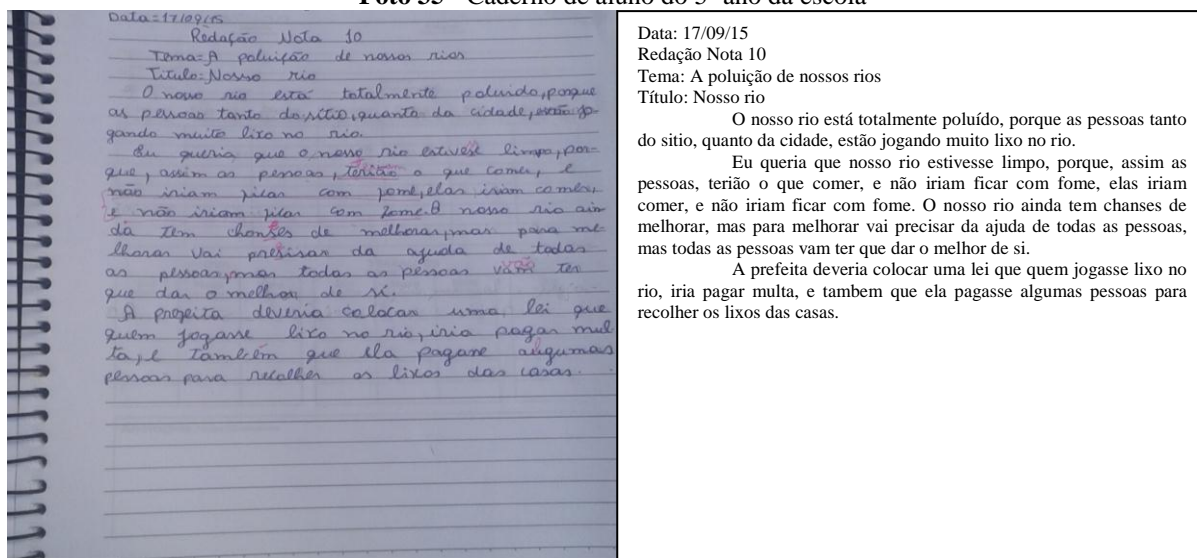 Foto 35 - Caderno de aluno do 5º ano da escola
Data: 17/09/15
Redação Nota 10
Tema: A poluição de nossos rios
Titulo: Nosso rio
O nosso rio está totalmente poluido, porque
as pessoas tanto do sitio, quanto da cidade, estão jo-
gando muito lixo no rio.
Eu queria que o nosso rio estivese limpo, por-
que, assim as pessoas, terião o que comer, e
não iriam ficar com fome, elas iriam comer,
e não iriam ficar com fome. O nosso rio ain
da tem chanses de melhorar, mas para me
lhorar vai presisar da ajuda de todas
as pessoas, mas todas as pessoas vam ter
que dar o melhor de si.
A prefeita deveria colocar uma lei que
quem jogasse lixo no rio, iria pagar mul
ta, e tambem que ela pagase algumas
pessoas para recolher os lixos das casas.
Data: 17/09/15
Redação Nota 10
Tema: A poluição de nossos rios
Título: Nosso rio
O nosso rio está totalmente poluído, porque as pessoas tanto
do sitio, quanto da cidade, estão jogando muito lixo no rio.
Eu queria que nosso rio estivesse limpo, porque, assim as
pessoas, terião o que comer, e não iriam ficar com fome, elas iriam
comer, e não iriam ficar com fome. O nosso rio ainda tem chanses de
melhorar, mas para melhorar vai precisar da ajuda de todas as pessoas,
mas todas as pessoas vam ter que dar o melhor de si.
A prefeita deveria colocar uma lei que quem jogasse lixo no
rio, iria pagar multa, e tambem que ela pagasse algumas pessoas para
recolher os lixos das casas.